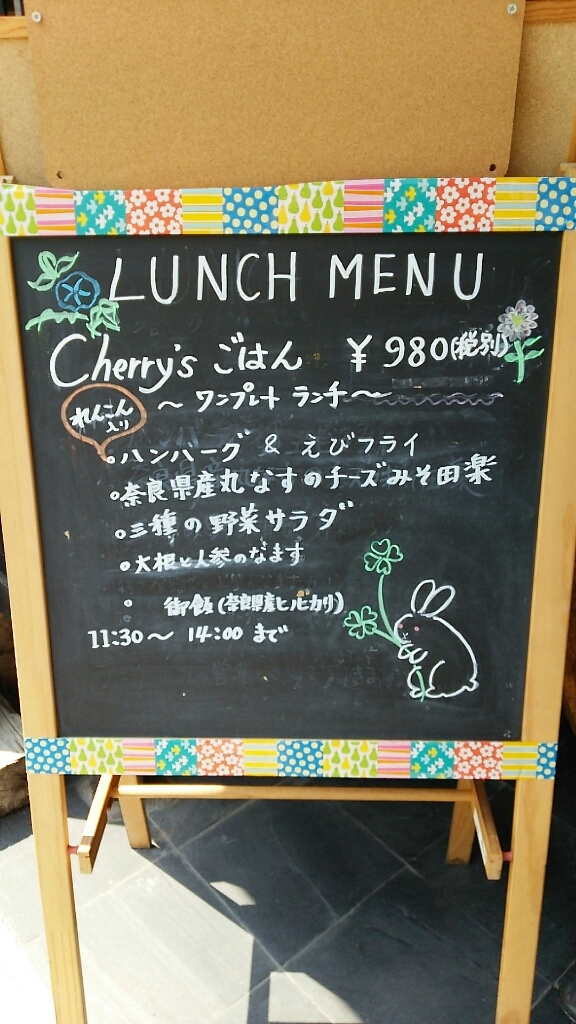 LUNCH MENU
Cherry's ごはん ¥980(税別)
～ワンプレートランチ～
れんこん
入り
・ハンバーグ & えびフライ
・奈良県産丸なすのチーズみそ田楽
・三種の野菜サラダ
・大根と人参のなます
・御飯(奈良県産ヒノヒカリ)
11:30～14:00まで